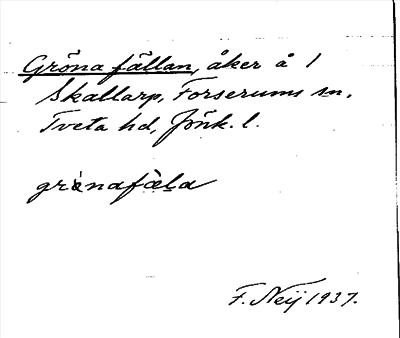 Gröna fällan, åker å 1
Skallarp, Forserums sn.
Tveta hd, Jönk. l.
grö̀nafä̀la
F. Neij 1937.